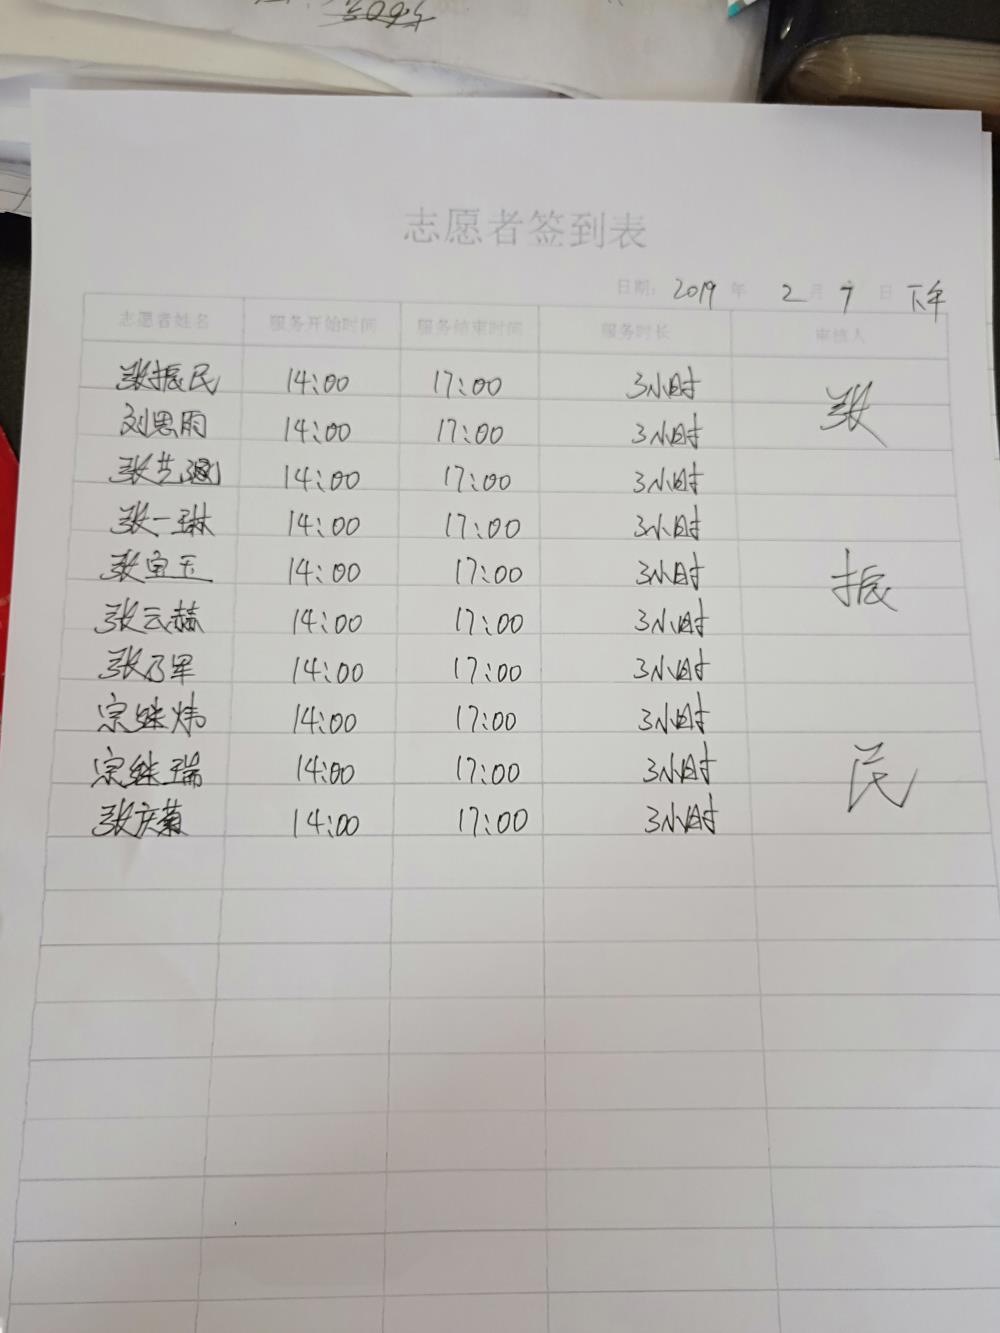 志愿者签到表
日期: 2019 年 2 月 7 日 下午
志愿者姓名 服务开始时间 服务结束时间 服务时长 审核人
张振民 14:00 17:00 3小时 张
刘思雨 14:00 17:00 3小时
张艺 14:00 17:00 3小时
张一琳 14:00 17:00 3小时
张宝玉 14:00 17:00 3小时 振
张云赫 14:00 17:00 3小时
张乃军 14:00 17:00 3小时
宗继炜 14:00 17:00 3小时
宗继瑞 14:00 17:00 3小时 民
张庆菊 14:00 17:00 3小时